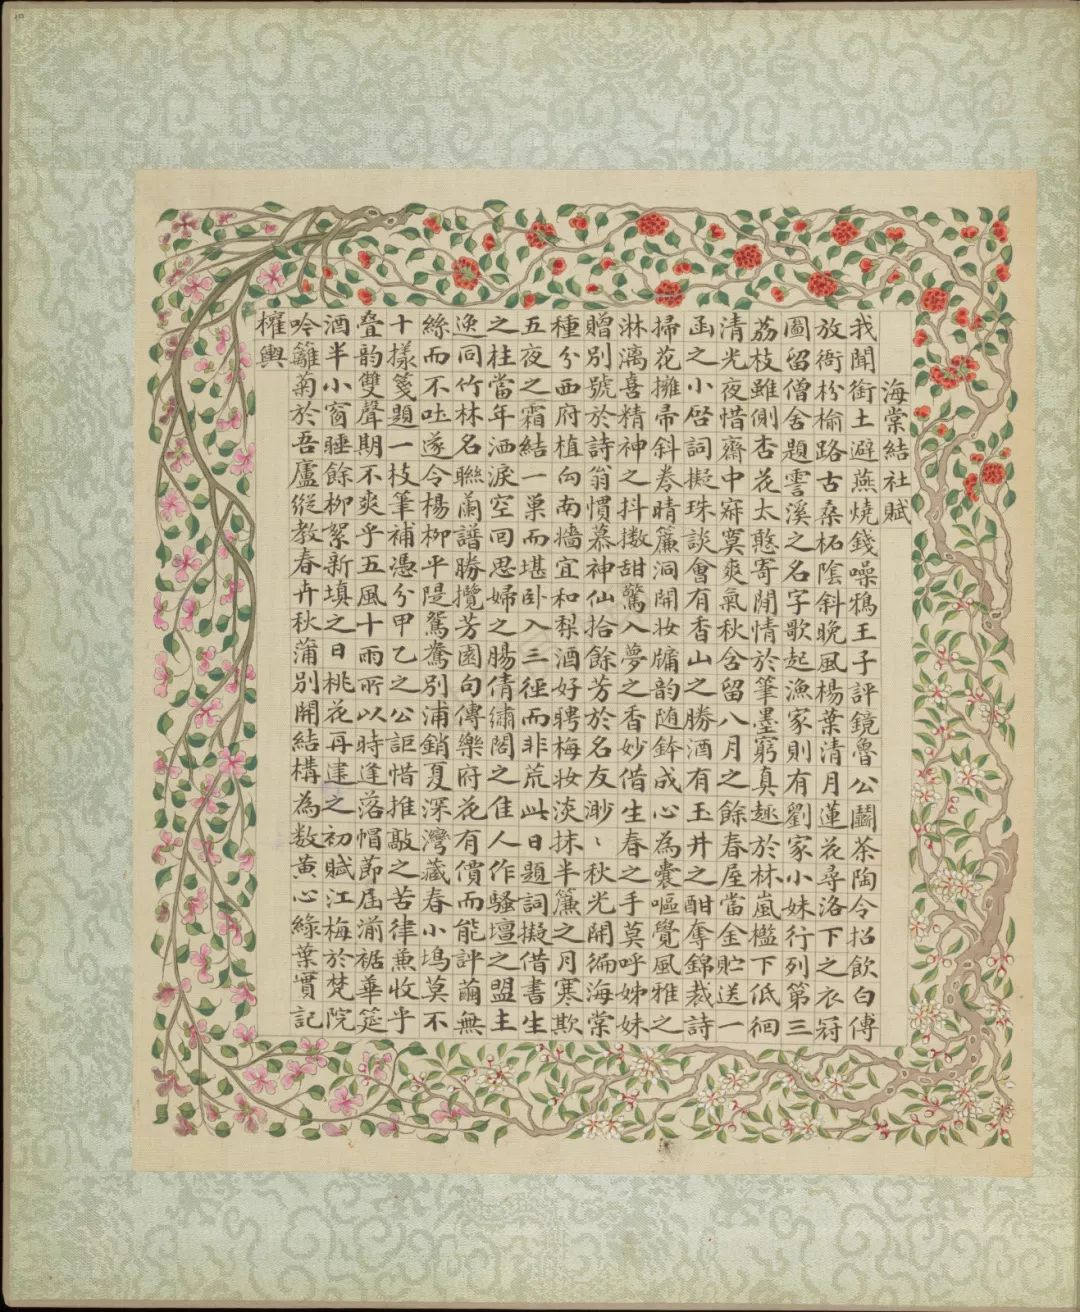 海棠結社賦
我聞銜土避燕燒錢噪鴉王子評鏡魯公鬭茶陶令招飲白傅
放衙枌榆路古桑柘陰斜晚風楊葉清月蓮花尋洛下之衣冠
圖留僧舍題霅溪之名字歌起漁家則有劉家小妹行列第三
荔枝雖側杏花太憨寄閒情於筆墨窮真趣於林嵐檻下低徊
清光夜惜齋中寂寞爽氣秋含留八月之餘春屋當金貯送一
函之小啓詞擬珠談會有香山之勝酒有玉井之酣奪錦裁詩
掃花擁帚斜捲晴簾洞開妝牖韵随鉢成心為囊嘔覺風雅之
淋漓喜精神之抖擻甜驚入夢之香妙借生春之手莫呼姊妹
贈別號於詩翁慣慕神仙拾餘芳於名友渺渺秋光開徧海棠
種分西府植向南墻宜和梨酒好聘梅妝淡抹半簾之月寒欺
五夜之霜結一巢而堪卧入三徑而非荒此日題詞擬借書生
之柱當年洒淚空回思婦之腸倩繡閣之佳人作騷壇之盟主
逸同竹林名聯蘭譜勝攬芳園句傳樂府花有價而能評繭無
絲而不吐遂令楊柳平隄鴛鴦別浦銷夏深灣藏春小塢莫不
十樣箋題一枝筆補憑分甲乙之公詎惜推敲之苦律兼收乎
叠韵雙聲期不爽乎五風十雨所以時逢落帽節屆湔裾華筵
酒半小窗睡餘柳絮新填之日桃花再建之初賦江梅於梵院
吟籬菊於吾廬縱教春卉秋蒲別開結構為数黄心綠葉實記
權輿